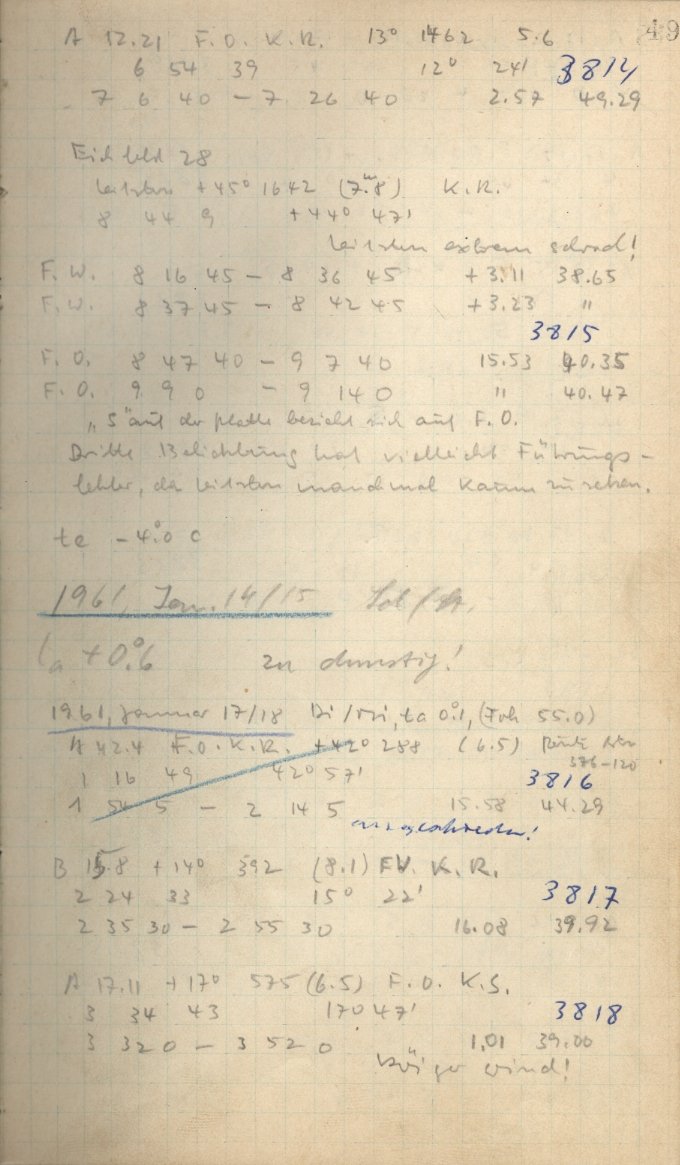 49
A 12.21 F.O. K.R. 13° 1462 5.6
6 54 39 12° 24' 3814
7 6 40 – 7 26 40 2.57 49.29
Eichfeld 28
Leitstern +45° 1642 (7.ᵐ8) K.R.
8 44 9 +44° 47'
Leitstern extrem schwach!
F.W. 8 16 45 – 8 36 45 +3.11 38.65
F.W. 8 37 45 – 8 42 45 +3.23 "
3815
F.O. 8 47 40 – 9 7 40 15.53 40.35
F.O. 9 9 0 – 9 14 0 " 40.47
„S" auf der Platte bezieht sich auf F.O.
Dritte Belichtung hat vielleicht Führungs-
fehler, da Leitstern manchmal kaum zu sehen.
ta – 4.°0 C
1961, Jan. 14/15
ta +0.°6 zu dunstig!
1961, Januar 17/18 Di/Mi, ta 0.°1, (Foh 55.0)
A 42.4 F.O. K.R. +42° 288 (6.5)
376–120
1 16 49 42° 57' 3816
1 54 5 – 2 14 5 15.58 44.29
ausgeschieden!
B 15.8 +14° 392 (8.1) F.W. K.R.
2 24 33 15° 22' 3817
2 35 30 – 2 55 30 16.08 39.92
A 17.11 +17° 575 (6.5) F.O. K.S.
3 34 43 17° 47' 3818
3 32 0 – 3 52 0 1.01 39.00
böiger Wind!